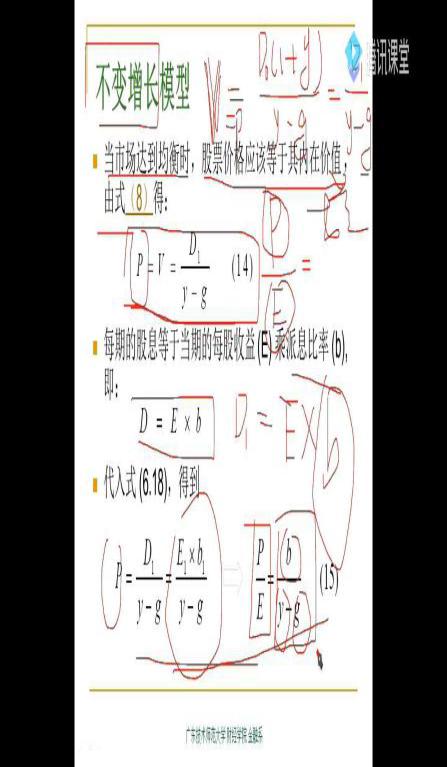 腾讯课堂
不变增长模型
V = D₀(1+g) / y-g =
当市场达到均衡时，股票价格应该等于其内在价值，
由式（8）得：
P = V = D₁ / y - g (14)
P / E =
每期的股息等于当期的每股收益(E)乘派息比率(b)，
即：
D = E × b D₁ = E × b
代入式(6.18)，得到
P = D₁ / y - g = E₁ × b₁ / y - g ⇒ P / E = b / y - g (15)
广东技术师范大学 财经学院 金融系